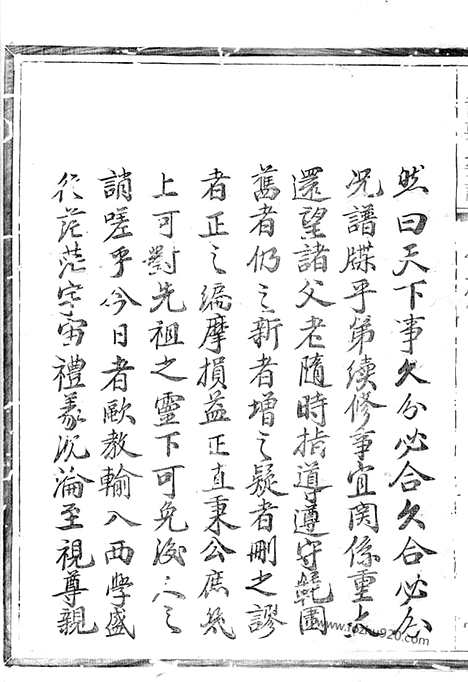 然曰天下事久分必合久合必分
况譜牒乎第續修事宜関係重大
還望諸父老隨時指導遵守範圍
舊者仍之新者增之疑者刪之謬
者正之編摩損益正直秉公庶幾
上可對先祖之靈下可免後人之
誚嗟乎今日者歐教輸入西學盛
行茫茫宇宙禮義沉淪至視尊親